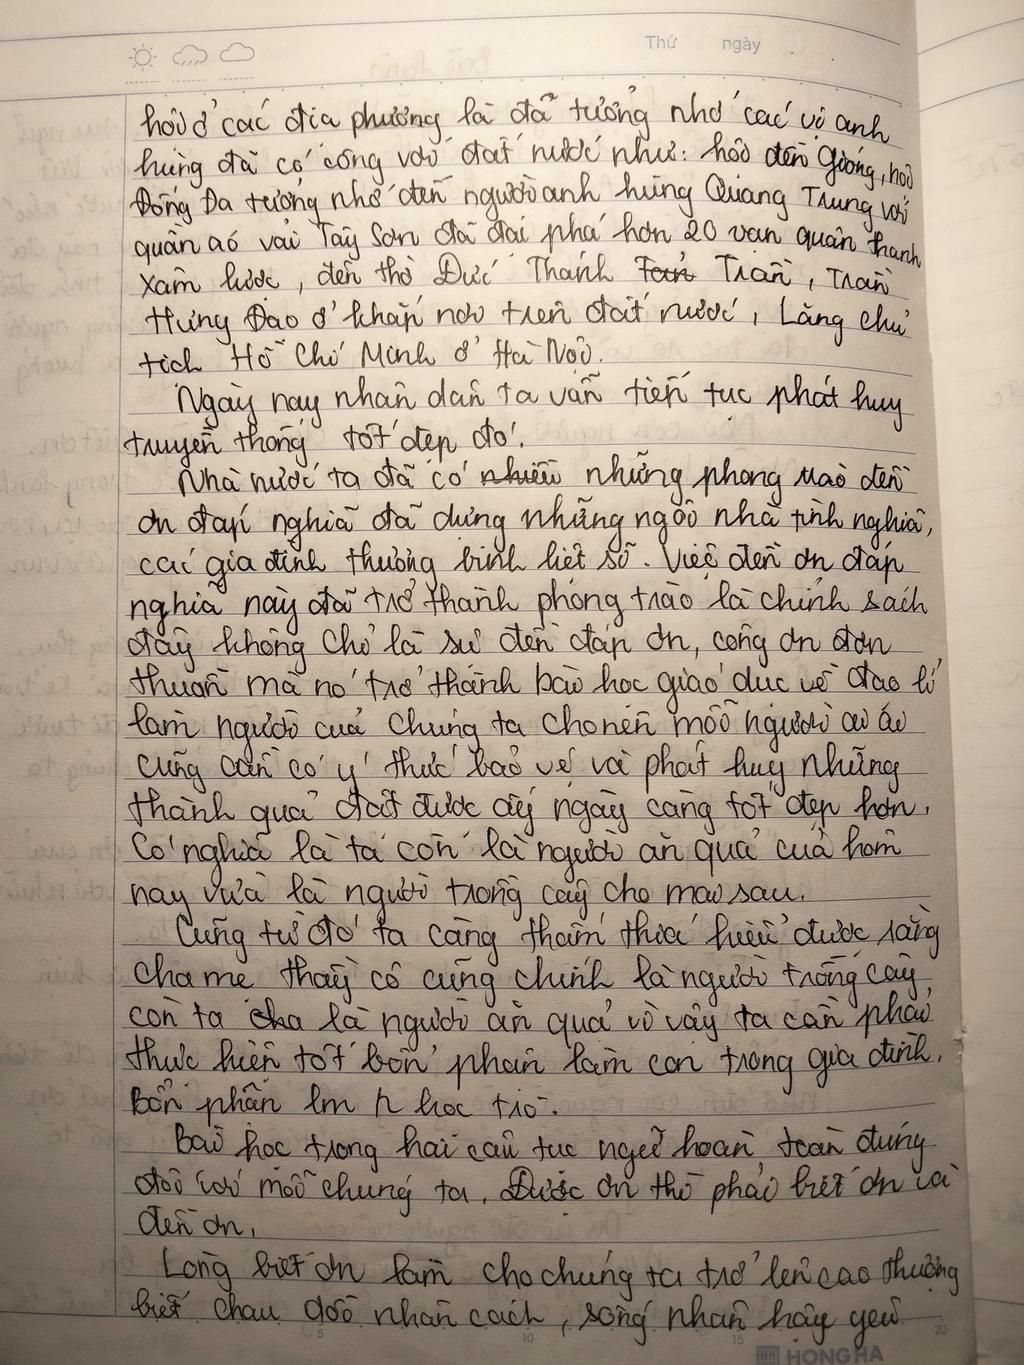 Thứ ngày
hội ở các địa phương là đã tưởng nhớ các vị anh
hùng đã có công với đất nước như: hội đền Gióng, hội
Đống Đa tưởng nhớ đến người anh hùng Quang Trung với
quân áo vải Tây Sơn đã đại phá hơn 20 vạn quân thanh
xâm lược, đền thờ Đức Thánh Trần, Trần
Hưng Đạo ở khắp nơi trên đất nước, Lăng chủ
tịch Hồ Chí Minh ở Hà Nội.
Ngày nay nhân dân ta vẫn tiếp tục phát huy
truyền thống tốt đẹp đó.
Nhà nước ta đã có nhiều những phong trào đền
ơn đáp nghĩa đã dựng những ngôi nhà tình nghĩa,
các gia đình thương binh liệt sĩ. Việc đền ơn đáp
nghĩa này đã trở thành phong trào là chính sách
đây không chỉ là sự đền đáp ơn, công ơn đơn
thuần mà nó trở thành bài học giáo dục về đạo lí
làm người của chúng ta cho nên mỗi người ai ai
cũng cần có ý thức bảo vệ và phát huy những
thành quả đạt được ấy ngày càng tốt đẹp hơn.
Có nghĩa là ta còn là người ăn quả của hôm
nay vừa là người trồng cây cho mai sau.
Cũng từ đó ta càng thấm thía hiểu được rằng
cha mẹ thầy cô cũng chính là người trồng cây,
còn ta là người ăn quả vì vậy ta cần phải
thực hiện tốt bổn phận làm con trong gia đình.
Bổn phận lm học trò.
Bài học trong hai câu tục ngữ hoàn toàn đúng
đối với mỗi chúng ta. Được ơn thì phải biết ơn và
đền ơn.
Lòng biết ơn làm cho chúng ta trở lên cao thượng
biết chau dồi nhân cách, sống nhân hậu yêu
5 10 15 20
HONG HA